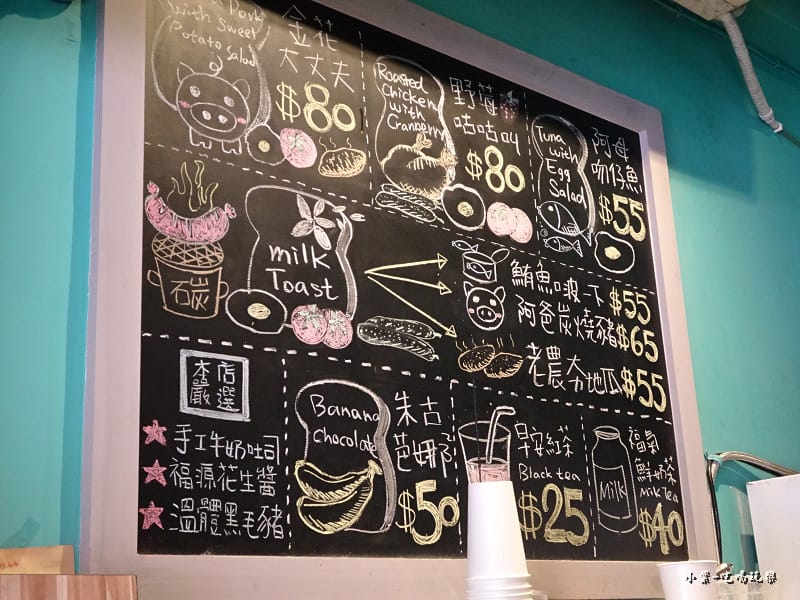 Pork
with Sweet
Potato Salad
金花
大丈夫
$80
Roasted
Chicken
with
Cranberry
野莓
咕咕叫
$80
Tuna
with
Egg
Salad
阿母
吻仔魚
$55
石炭
milk
Toast
鮪魚啵一下 $55
阿爸炭燒豬 $65
老農夯地瓜 $55
本店
嚴選
手工牛奶吐司
福源花生醬
溫體黑毛豬
Banana
chocolate
朱古
芭娜
$50
早安紅茶
Black tea
$25
MILK
福氣
鮮奶茶
Milk Tea
$40
小葉-吃喝玩樂